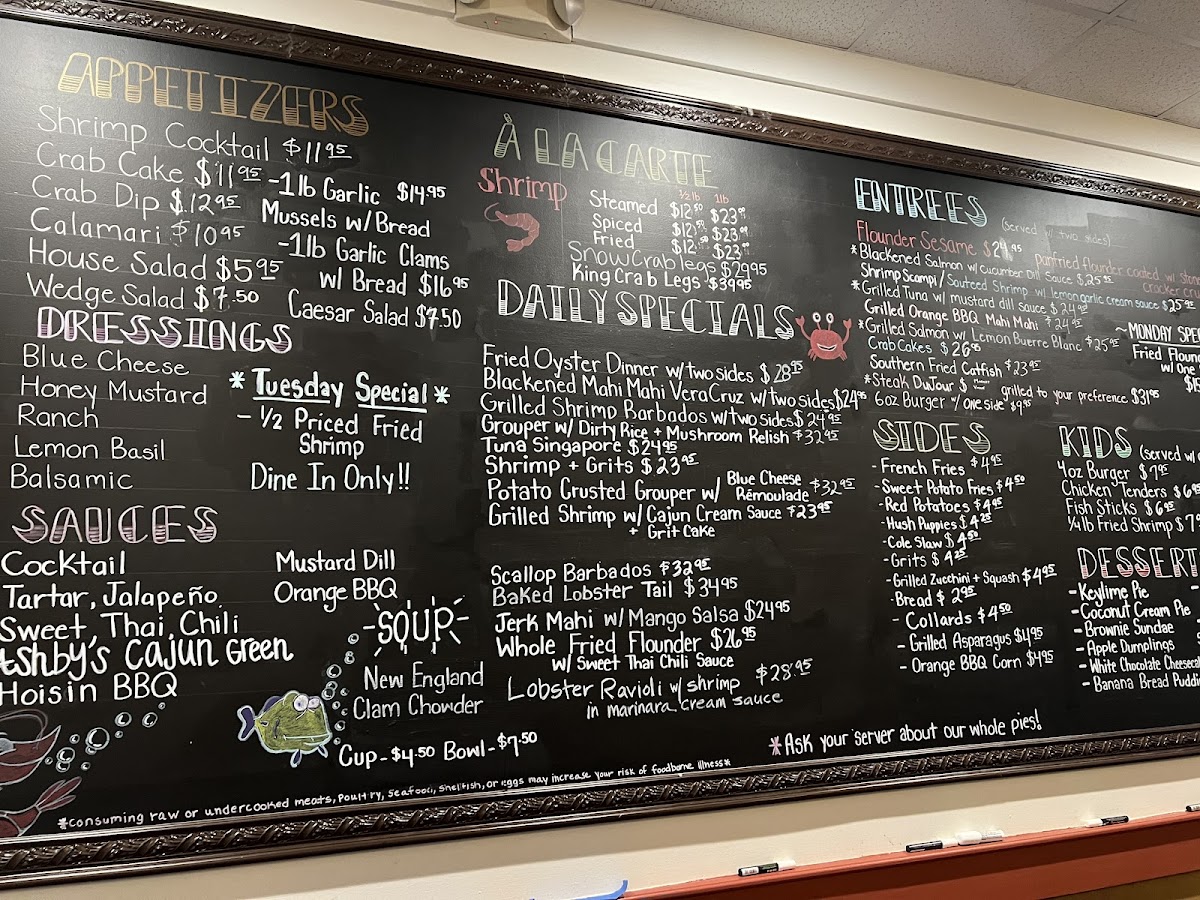 APPETIZERS
Shrimp Cocktail $11.95
Crab Cake $11.95
Crab Dip $12.95
Calamari $10.95
House Salad $5.95
Wedge Salad $7.50
-1lb Garlic $14.95
Mussels w/Bread
-1lb Garlic Clams
w/ Bread $16.95
Caesar Salad $7.50
DRESSINGS
Blue Cheese
Honey Mustard
Ranch
Lemon Basil
Balsamic
*Tuesday Special*
- 1/2 Priced Fried
Shrimp
Dine In Only!!
SAUCES
Cocktail
Tartar, Jalapeño
Sweet, Thai, Chili
Ashby's Cajun Green
Hoisin BBQ
Mustard Dill
Orange BBQ
-SOUP-
New England
Clam Chowder
Cup-$4.50 Bowl-$7.50
*consuming raw or undercooked meats, poultry, seafood, shellfish, or eggs may increase your risk of foodborne illness*
À LA CARTE
Shrimp
1/2 lb 1lb
Steamed $12.50 $23.99
Spiced $12.50 $23.99
Fried $12.50 $23.99
Snow Crab legs $29.95
King Crab Legs $39.95
DAILY SPECIALS
Fried Oyster Dinner w/two sides $28.95
Blackened Mahi Mahi VeraCruz w/two sides $24.95
Grilled Shrimp Barbados w/two sides $24.95
Grouper w/ Dirty Rice + Mushroom Relish $32.95
Tuna Singapore $24.95
Shrimp + Grits $23.95
Potato Crusted Grouper w/ Blue Cheese Rémoulade $32.95
Grilled Shrimp w/ Cajun Cream Sauce $23.95
+ Grit Cake
Scallop Barbados $32.95
Baked Lobster Tail $34.95
Jerk Mahi w/Mango Salsa $24.95
Whole Fried Flounder $26.95
w/ Sweet Thai Chili Sauce
Lobster Ravioli w/ shrimp $28.95
in marinara cream sauce
ENTREES (served w/ two sides)
Flounder Sesame $24.95 panfried flounder coated w/
cracker
*Blackened Salmon w/cucumber Dill Sauce $25.95
Shrimp Scampi/Sauteed Shrimp w/ lemon garlic cream sauce $25.95
*Grilled Tuna w/ mustard dill sauce $24.95
Grilled Orange BBQ Mahi Mahi $24.95
*Grilled Salmon w/ Lemon Buerre Blanc $25.95
Crab Cakes $26.95
Southern Fried Catfish $23.95
*Steak DuJour $ grilled to your preference $31.95
6oz Burger w/ one side $9.95
~MONDAY
Fried
w/ One
SIDES
-French Fries $4.95
-Sweet Potato Fries $4.50
-Red Potatoes $4.95
-Hush Puppies $4.25
-Cole Slaw $4.50
-Grits $4.25
-Grilled Zucchini + Squash $4.95
-Bread $2.95
-Collards $4.50
-Grilled Asparagus $4.95
-Orange BBQ Corn $4.95
KIDS (served w/
4oz Burger $7.95
Chicken Tenders
Fish Sticks $6.95
1/4lb Fried Shrimp
DESSERT
-Keylime Pie
-Coconut Cream Pie
-Brownie Sundae
-Apple Dumplings
-White Chocolate
-Banana Bread
*Ask your server about our whole pies!